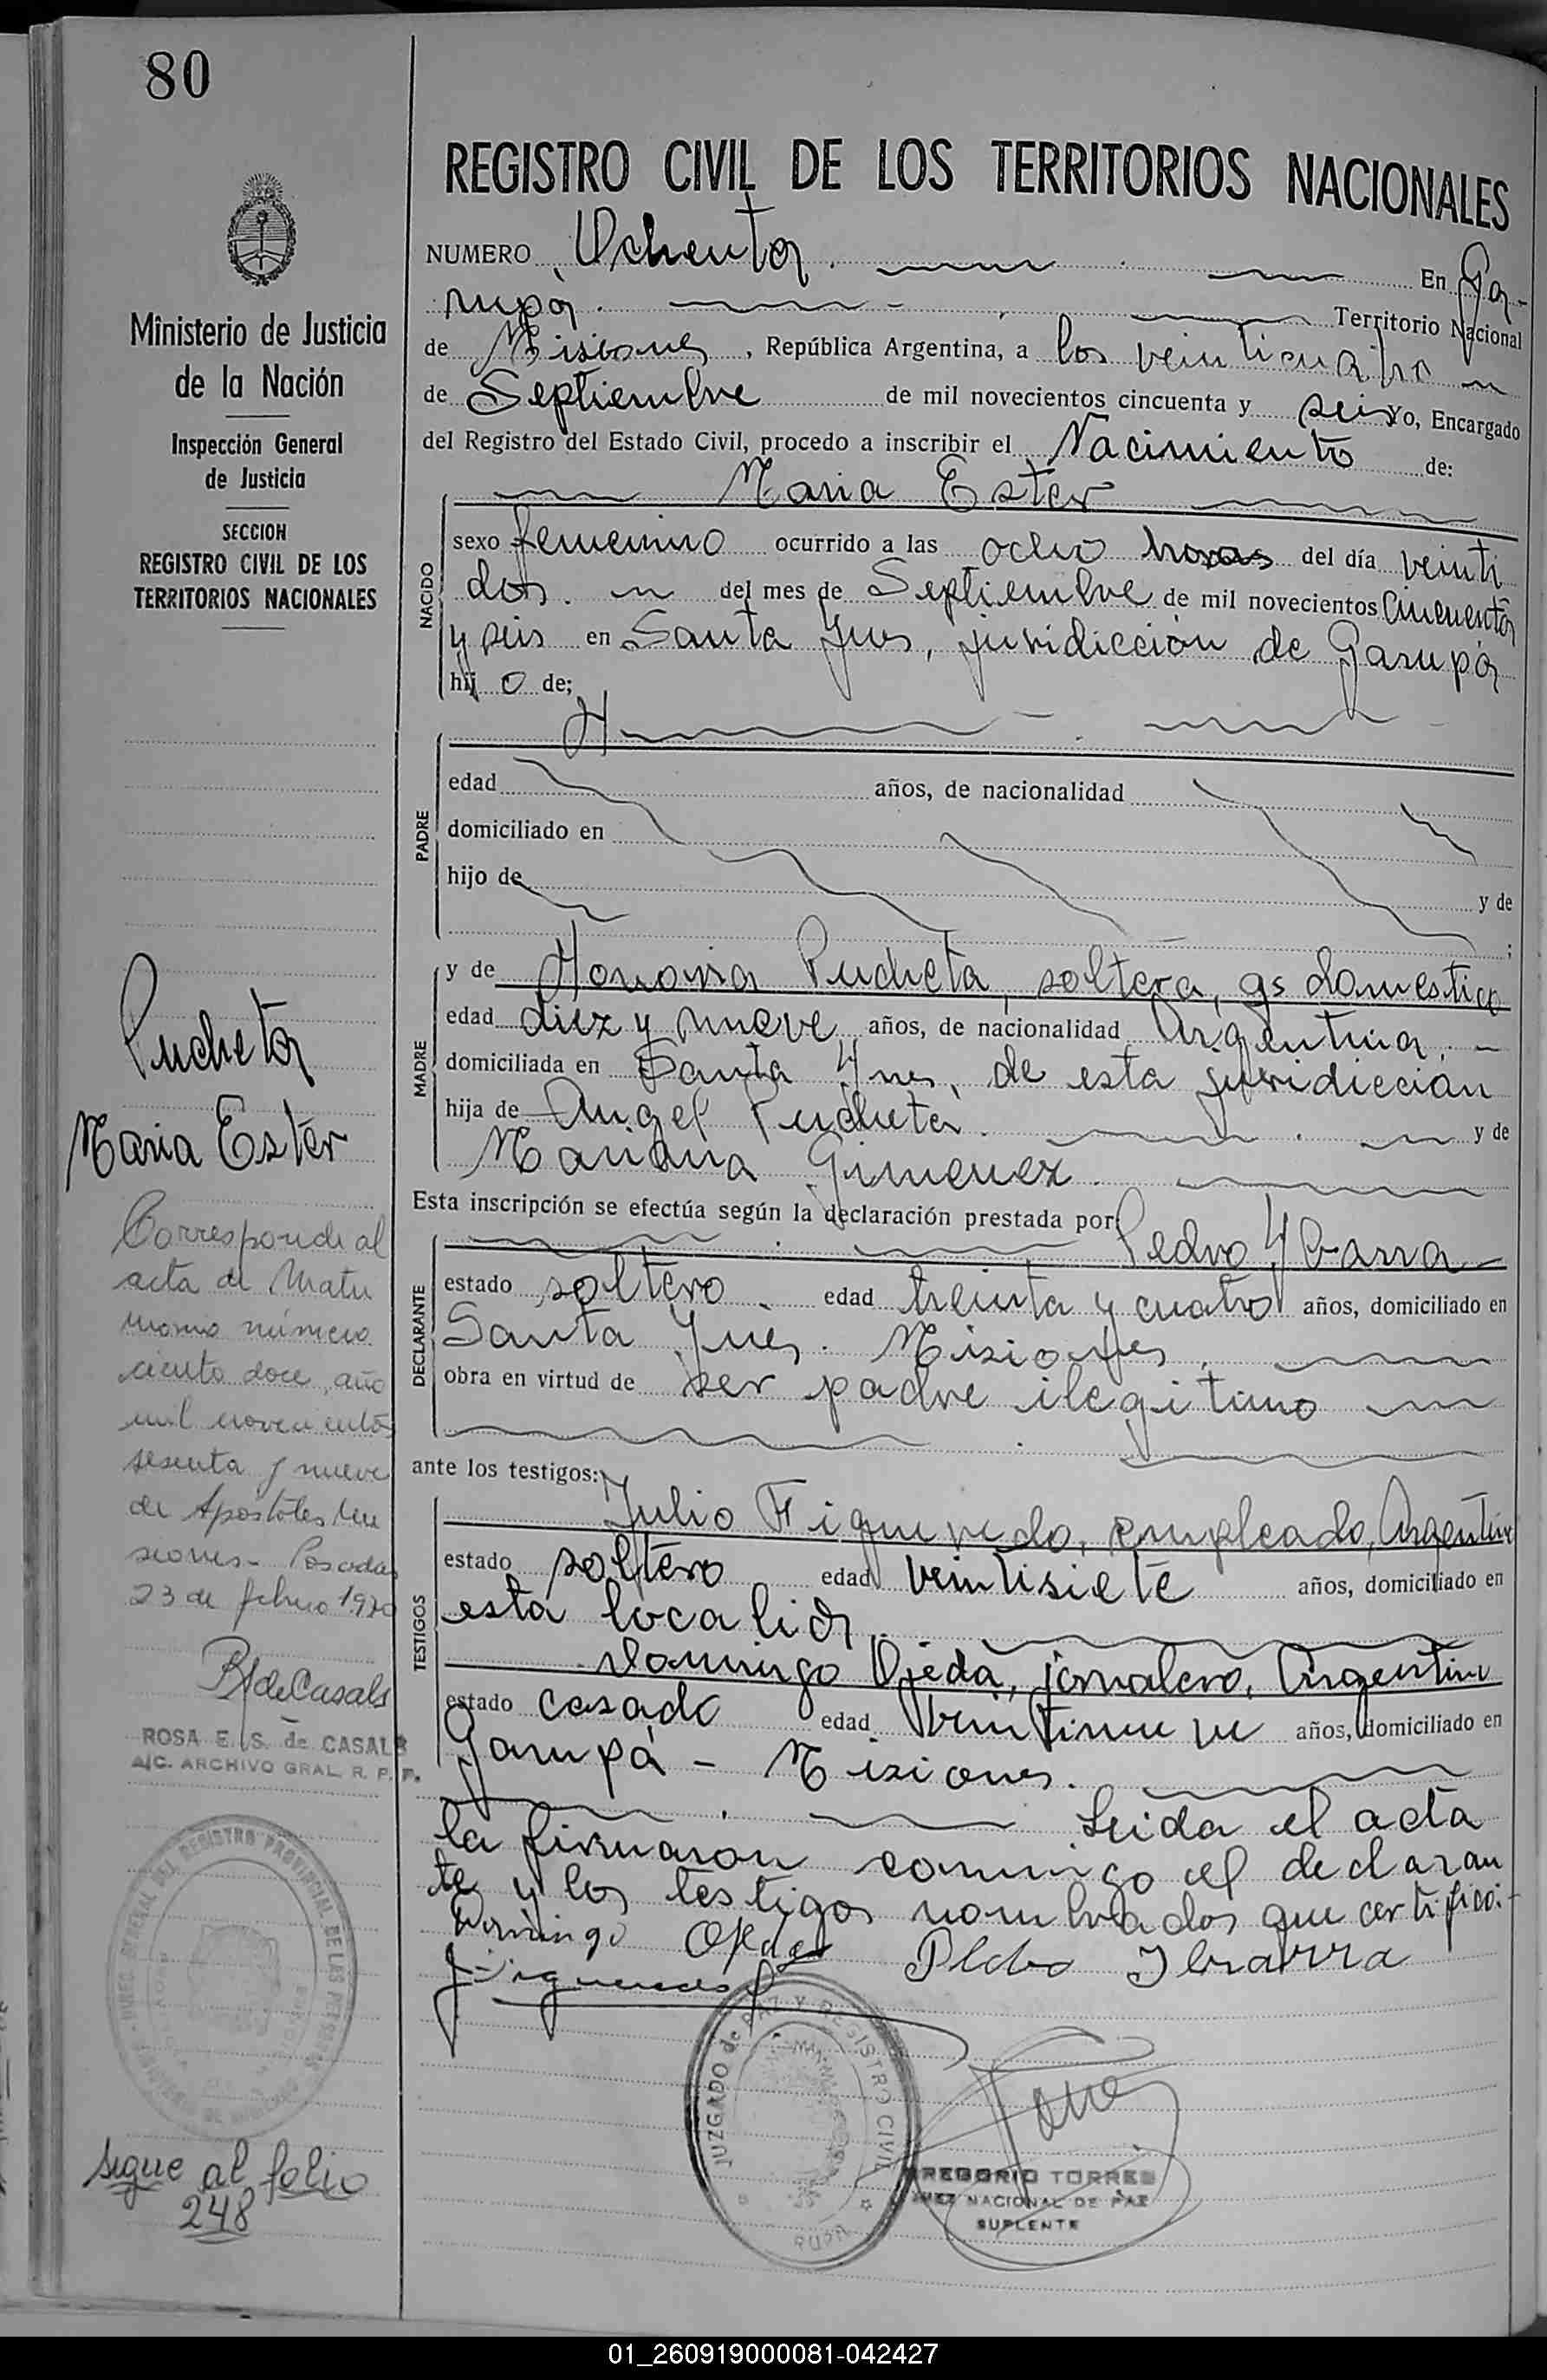 80
REGISTRO CIVIL DE LOS TERRITORIOS NACIONALES
Ministerio de Justicia
de la Nación
Inspección General
de Justicia
SECCION
REGISTRO CIVIL DE LOS
TERRITORIOS NACIONALES
NUMERO Ochenta. En Ga-
rupá. Territorio Nacional
de Misiones, República Argentina, a los veinticuatro
de Septiembre de mil novecientos cincuenta y seis Yo, Encargado
del Registro del Estado Civil, procedo a inscribir el Nacimiento de:
Maria Ester
NACIDO
sexo femenino ocurrido a las ocho horas del día veinti
dos. del mes de Septiembre de mil novecientos Cincuenta
y seis en Santa Ynes, juridiccion de Garupá
hij o de;
PADRE
edad años, de nacionalidad
domiciliado en
hijo de y de
;
MADRE
y de Honoria Pucheta, soltera, qs domestico
edad diez y nueve años, de nacionalidad Argentina. -
domiciliada en Santa Ynes, de esta juridiccion
hija de Angel Pucheta. y de
Mariana Gimenez.
Esta inscripción se efectúa según la declaración prestada por:
Pedro Ybarra
DECLARANTE
estado soltero. edad treinta y cuatro años, domiciliado en
Santa Ynes. Misiones.
obra en virtud de ser padre ilegitimo
ante los testigos:
TESTIGOS
Julio Figueredo, empleado, Argentino
estado soltero edad veintisiete años, domiciliado en
esta localid
Domingo Ojeda, jornalero, Argentino
estado casado edad veintinueve años, domiciliado en
Garupá - Misiones.
Leida el acta
la firmaron conmigo el declaran
te y los testigos nombrados que certifico:-
Domingo Ojeda Pedro Ibarra
JUZGADO de PAZ Y REGISTRO CIVIL
GREGORIO TORRES
JUEZ NACIONAL DE PAZ
SUPLENTE
Pucheta
Maria Ester
Corresponde al
acta de Matri
monio número
ciento doce, año
mil novecientos
sesenta y nueve
de Apostoles Mi
siones- Posadas
23 de febrero 1970
R de Casals
ROSA E. S. de CASALS
A/C. ARCHIVO GRAL. R. P. P.
sigue al folio
248
01_260919000081-042427